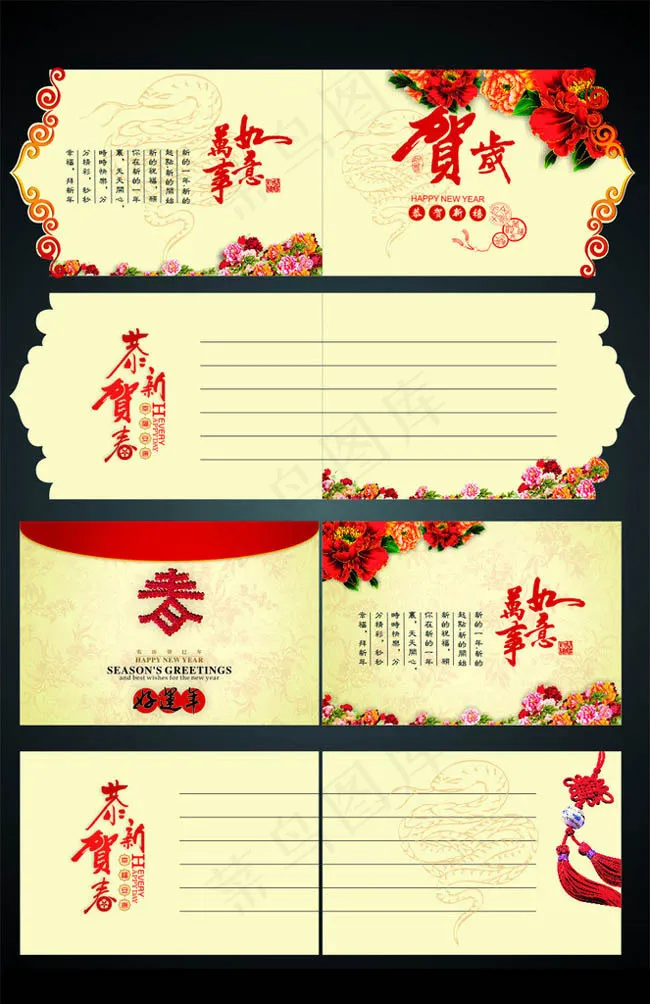 萬事
如意
新的一年新的
起點新的開始
新的祝福，願
你在新的一年
裏，天天開心，
時時快樂，分
分精彩，秒秒
幸福，拜新年
賀歲
HAPPY NEW YEAR
恭賀新禧
恭賀新春
EVERY
HAPPYDAY
春
農歷癸巳年
HAPPY NEW YEAR
SEASON'S GREETINGS
and best wishes for the new year
好運年
萬事
如意
新的一年新的
起點新的開始
新的祝福，願
你在新的一年
裏，天天開心，
時時快樂，分
分精彩，秒秒
幸福，拜新年
恭賀新春
EVERY
HAPPYDAY
菜鸟图库